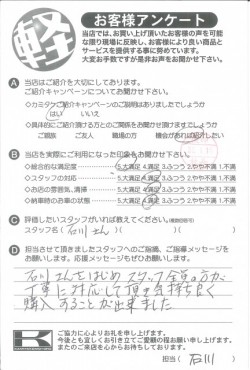 軽
お客様アンケート
当店では、お買い上げ頂いたお客様の声を可能
な限り現場に反映し、お客様により良い商品と
サービスを提供する事に努めています。
大変お手数ですが是非お声をお聞かせ下さい。
A 当店はご紹介を大切にしております。
ご紹介キャンペーンについてお聞かせ下さい。
◇カミタケご紹介キャンペーンのご説明はありましたでしょうか
はい いいえ
◇具体的にご紹介頂ける方とのご関係をお聞かせ頂けますでしょうか
ご親族 ご友人 職場の方 機会があれば紹介したい
B 当店を実際にご利用になった印象をお聞かせ下さい
◇総合的な満足度 5.大満足 4.満足 3.ふつう 2.やや不満 1.不満
◇スタッフの対応 5.大満足 4.満足 3.ふつう 2.やや不満 1.不満
◇お店の雰囲気、清掃 5.大満足 4.満足 3.ふつう 2.やや不満 1.不満
◇納車時のお車の状態 5.大満足 4.満足 3.ふつう 2.やや不満 1.不満
C 評価したいスタッフがいれば教えてください。
スタッフ名( 石川さん )( )( )
D 担当させて頂きましたスタッフへのご指摘、ご指導メッセージを
お願いします。応援メッセージもぜひお願いします。
石川さんをはじめスタッフ全員の方が
丁寧に対応して頂き気持ち良く
購入することが出来ました
K
ご協力に心よりお礼を申し上げます。
今後とも宜しくお引き立てご愛顧の程お願い申し上げます。
またのご来店を心からお待ちしております。
担当( 石川 )